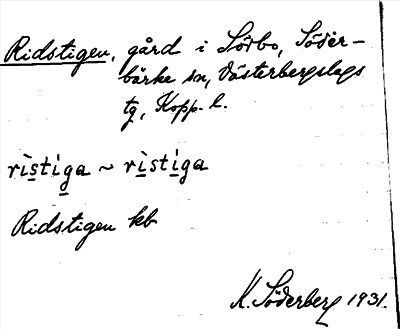 Ridstigen, gård i Sörbo, Söder-
bärke sn, Västerbergslags
tg, Kopp. l.
rìstiga ~ rìstiga
Ridstigen kb
K. Söderberg 1931.